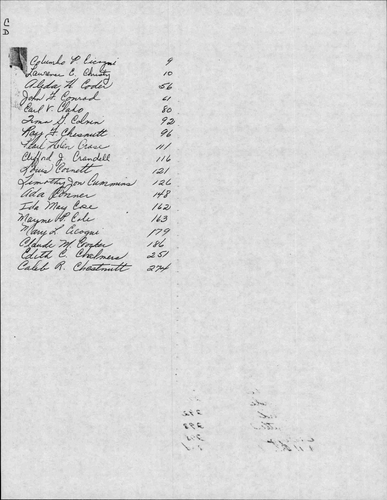 C
D
P. Cicogni 9
Lawrence E. Christy 10
Alydia H. Cooler 56
John F. Conrad 61
Earl V. Claro 80
Irma G. Colvin 92
Ray F. Chesnutt 96
Pearl Helen Crase 111
Clifford J. Crandell 116
Louis Cornett 121
Timothy Jon Cummins 126
Ada Conner 148
Ida May Coe 162
Mayne H. Cole 163
Mary L. Cicogni 179
Claude M. Cooler 186
Edith C. Chalmers 251
Caleb R. Chestnutt 274